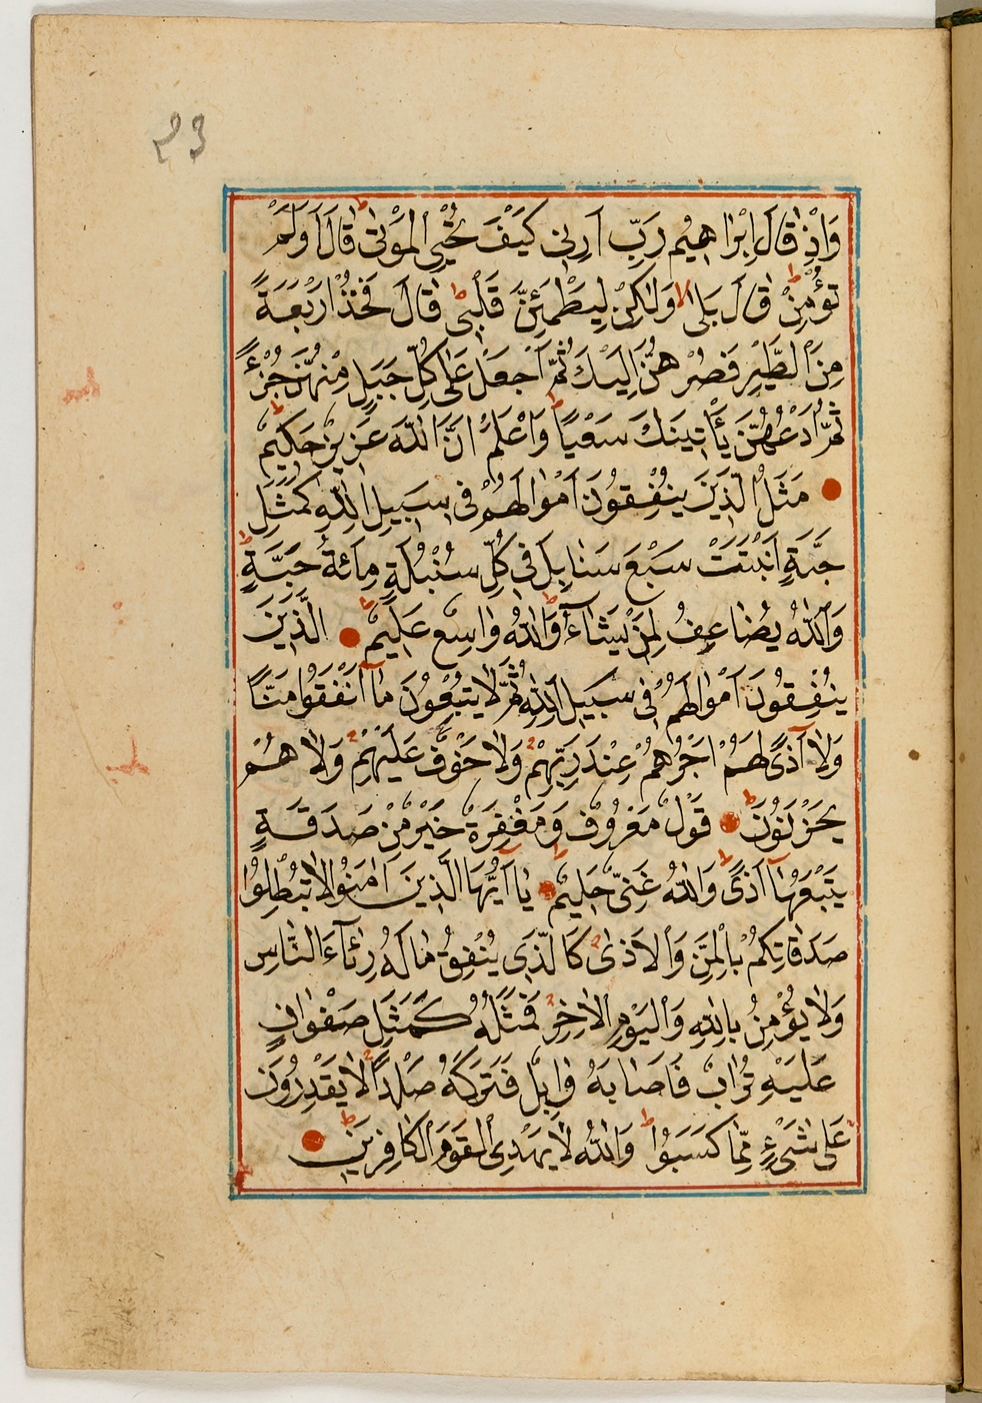 23
وَاِذْ قَالَ اِبْرَاهِيمُ رَبِّ اَرِنِى كَيْفَ تُحْيِى الْمَوْتٰى ط قَالَ اَوَلَمْ
تُؤْمِنْ ط قَالَ بَلٰى لا وَلٰكِنْ لِيَطْمَئِنَّ قَلْبِى ط قَالَ فَخُذْ اَرْبَعَةً
مِنَ الطَّيْرِ فَصُرْهُنَّ اِلَيْكَ ثُمَّ اجْعَلْ عَلٰى كُلِّ جَبَلٍ مِنْهُنَّ جُزْءً
ثُمَّ ادْعُهُنَّ يَأْتِينَكَ سَعْيًا ط وَاعْلَمْ اَنَّ اللّٰهَ عَزِيزٌ حَكِيمٌ ط
مَثَلُ الَّذِينَ يُنْفِقُونَ اَمْوَالَهُمْ فِى سَبِيلِ اللّٰهِ كَمَثَلِ
حَبَّةٍ اَنْبَتَتْ سَبْعَ سَنَابِلَ فِى كُلِّ سُنْبُلَةٍ مِائَةُ حَبَّةٍ ط
وَاللّٰهُ يُضَاعِفُ لِمَنْ يَشَاءُ ط وَاللّٰهُ وَاسِعٌ عَلِيمٌ ط الَّذِينَ
يُنْفِقُونَ اَمْوَالَهُمْ فِى سَبِيلِ اللّٰهِ ثُمَّ لَا يُتْبِعُونَ مَا اَنْفَقُوا مَنًّا
وَلَا اَذًى لَهُمْ اَجْرُهُمْ عِنْدَ رَبِّهِمْ وَلَا خَوْفٌ عَلَيْهِمْ وَلَا هُمْ
يَحْزَنُونَ ط قَوْلٌ مَعْرُوفٌ وَمَغْفِرَةٌ خَيْرٌ مِنْ صَدَقَةٍ
يَتْبَعُهَا اَذًى ط وَاللّٰهُ غَنِىٌّ حَلِيمٌ ط يَا اَيُّهَا الَّذِينَ اٰمَنُوا لَا تُبْطِلُوا
صَدَقَاتِكُمْ بِالْمَنِّ وَالْاَذٰى كَالَّذِى يُنْفِقُ مَالَهُ رِئَاءَ النَّاسِ
وَلَا يُؤْمِنُ بِاللّٰهِ وَالْيَوْمِ الْاٰخِرِ فَمَثَلُهُ كَمَثَلِ صَفْوَانٍ
عَلَيْهِ تُرَابٌ فَاَصَابَهُ وَابِلٌ فَتَرَكَهُ صَلْدًا لَا يَقْدِرُونَ
عَلٰى شَىْءٍ مِمَّا كَسَبُوا ط وَاللّٰهُ لَا يَهْدِى الْقَوْمَ الْكَافِرِينَ ط